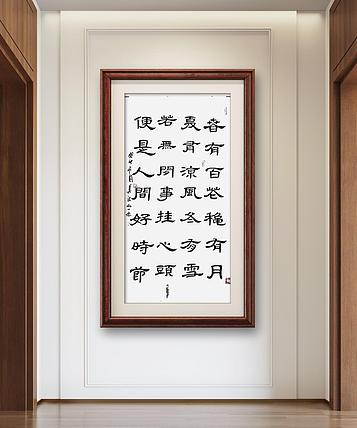 春有百花穐有月
夏有涼風冬有雪
若無閒事挂心頭
便是人間好時節